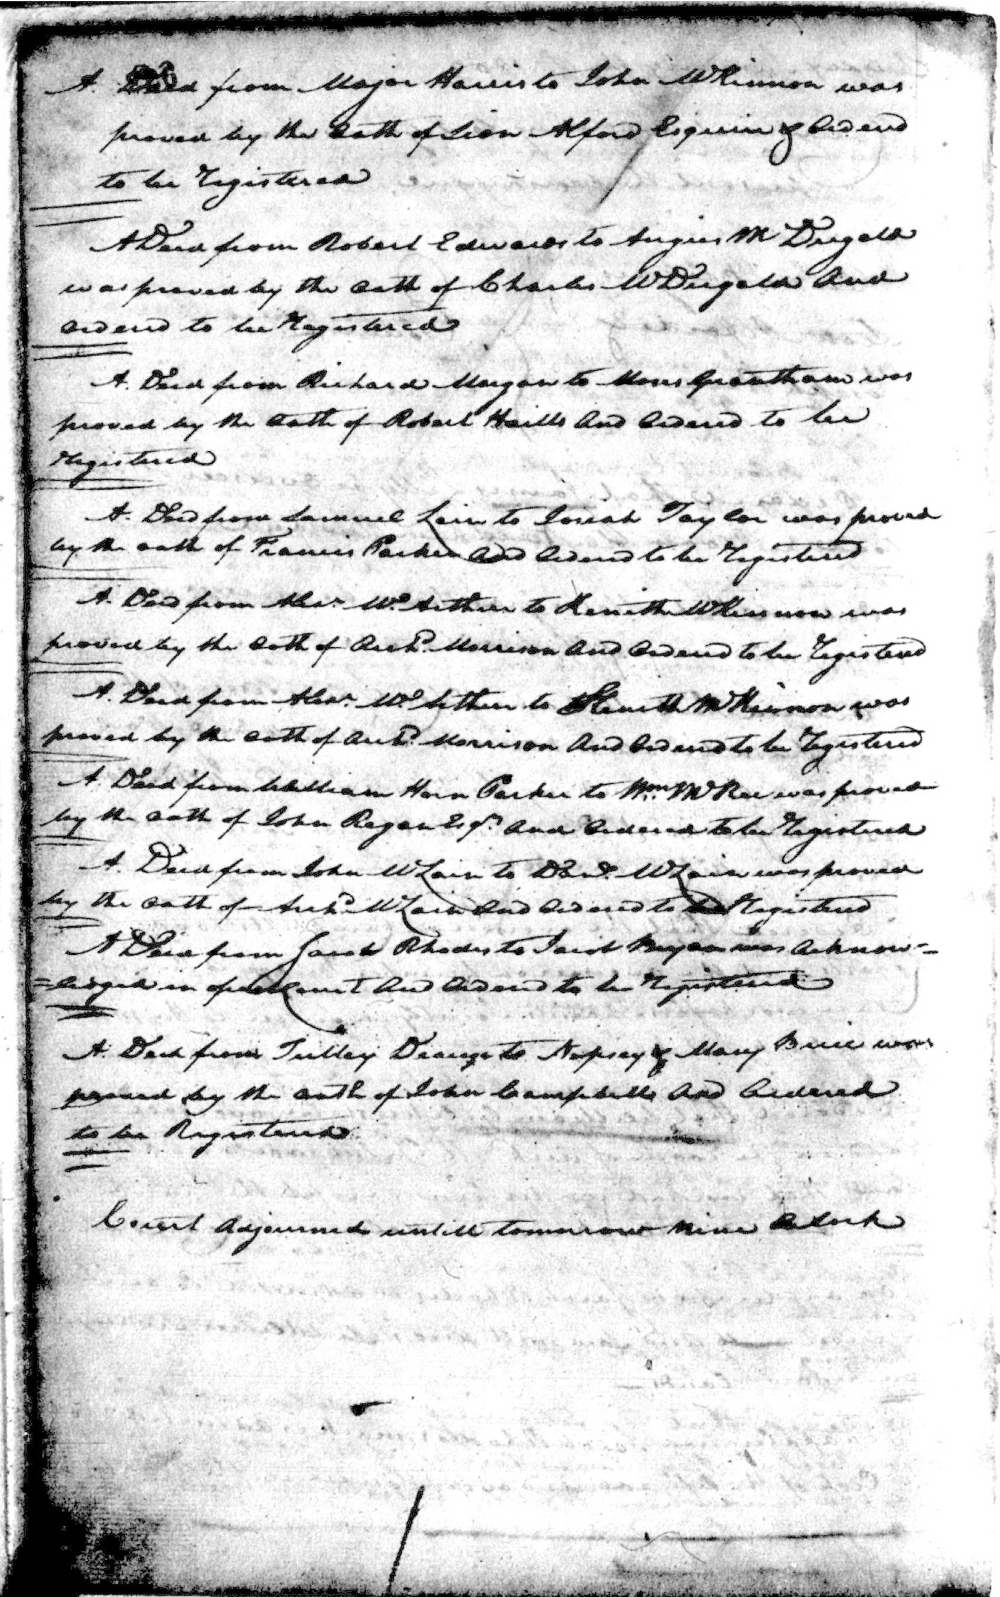 A Deed from Major Harris to John McKinnon was
proved by the Oath of Sion Alford Esquire & Ordered
to be Registered
A Deed from Robert Edwards to Angus Mc Dugald
was proved by the Oath of Charles McDugald And
Ordered to be Registered
A Deed from Richard Morgan to Grantham was
proved by the Oath of Robert Haills And Ordered to be
Registered
A Deed from Samuel Lain to Josiah Taylor was proved
by the oath of Francis Parker And Ordered to be Registered
A Deed from Alexr. Mc Arthur to Kenith McKinnon was
proved by the Oath of Archd. Morrison And Ordered to be Registered
A Deed from Alexr. Mc Arthur to Kenith McKinnon was
proved by the Oath of Archd. Morrison And Ordered to be Registered
A Deed from William Horn Parker to Wm. McRae was proved
by the Oath of John Regan Esqr. And Ordered to be Registered
A Deed from John McLain to McLain was proved
by the Oath of Archd. McLain And Ordered to be Registered
A Deed from Jacob Rhodes to Jacob Bryan was Acknow=
=ledged in open Court And Ordered to be Registered
A Deed from Tulley to & Mary Brice was
proved by the Oath of John Campbell And Ordered
to be Registered
Court Adjourned untill tomorrow Nine Oclock